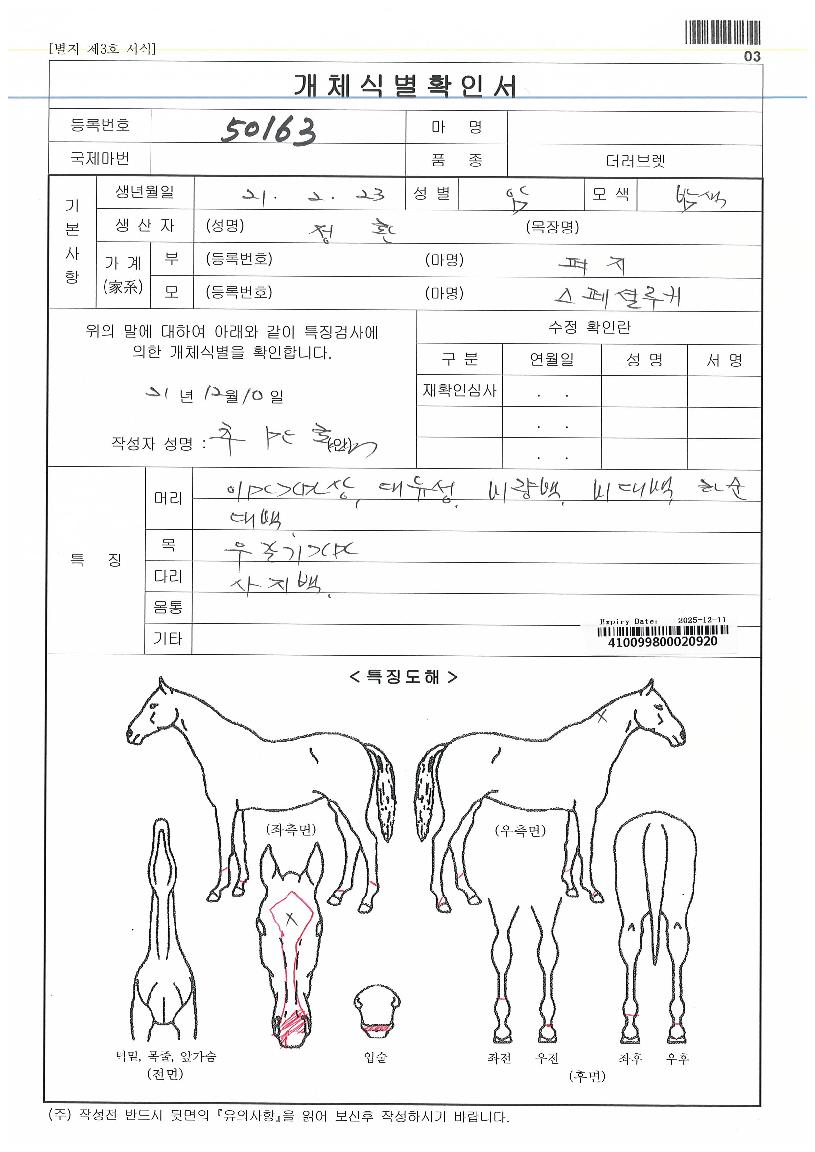 [별지 제3호 서식]
03
개체식별확인서
등록번호 50163 마 명
국제마번 품 종 더러브렛
기본사항
생년월일 21. 2. 23 성 별 암 모 색 밤색
생 산 자 (성명) 정 환 (목장명)
가 계 (家系) 부 (등록번호) (마명) 퍼 지
모 (등록번호) (마명) 스페셜루키
위의 말에 대하여 아래와 같이 특징검사에
의한 개체식별을 확인합니다.
21 년 12월 10 일
작성자 성명 : (인)
수정 확인란
구 분 연월일 성 명 서 명
재확인심사 . .
. .
. .
특 징
머리 대유성, 비량백, 비대백
대백,
목
다리 사지백.
몸통
기타
Expiry Date: 2025-12-11
410099800020920
< 특징도해 >
(좌측면) (우측면)
너밑, 목줄, 앞가슴
(전면)
입술
좌전 우전 좌후 우후
(후면)
(주) 작성전 반드시 뒷면의 『유의사항』을 읽어 보신후 작성하시기 바랍니다.